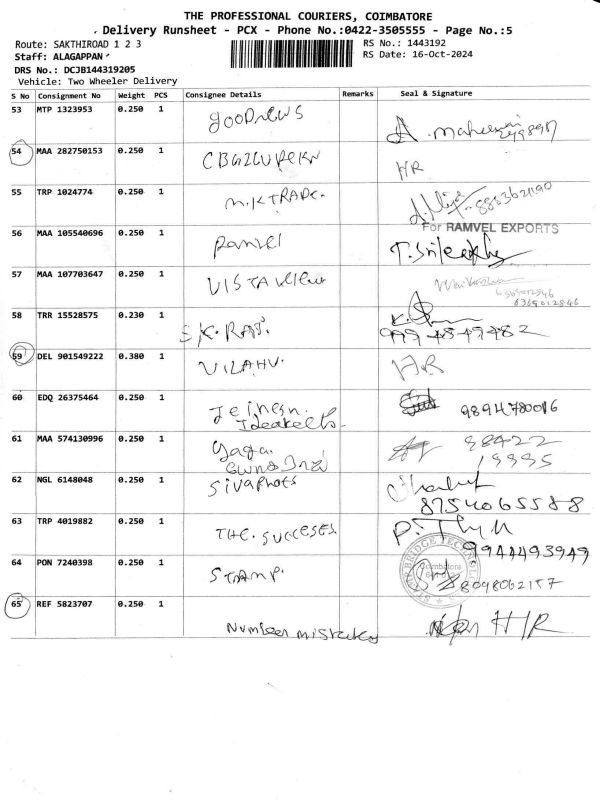 THE PROFESSIONAL COURIERS, COIMBATORE
Delivery Runsheet - PCX - Phone No.:0422-3505555 - Page No.:5
Route: SAKTHIROAD 1 2 3
RS No.: 1443192
Staff: ALAGAPPAN
RS Date: 16-Oct-2024
DRS No.: DCJB144319205
Vehicle: Two Wheeler Delivery
S No Consignment No Weight PCS Consignee Details Remarks Seal & Signature
53 MTP 1323953 0.250 1 goodnews
54 MAA 282750153 0.250 1 HR
55 TRP 1024774 0.250 1 M.K TRADE.
For RAMVEL EXPORTS
56 MAA 105540696 0.250 1 Daniel
57 MAA 107703647 0.250 1 VISTA View
6369012846
58 TRR 15528575 0.230 1 S.K. RAJ.
59 DEL 901549222 0.380 1 HR
60 EDQ 26375464 0.250 1 9894780016
61 MAA 574130996 0.250 1 98422
19995
62 NGL 6148048 0.250 1
8754065588
63 TRP 4019882 0.250 1 THE. SUCCESES
9944493949
64 PON 7240398 0.250 1 STAMP. Coimbatore 8098062157
65 REF 5823707 0.250 1 Number mistake HR